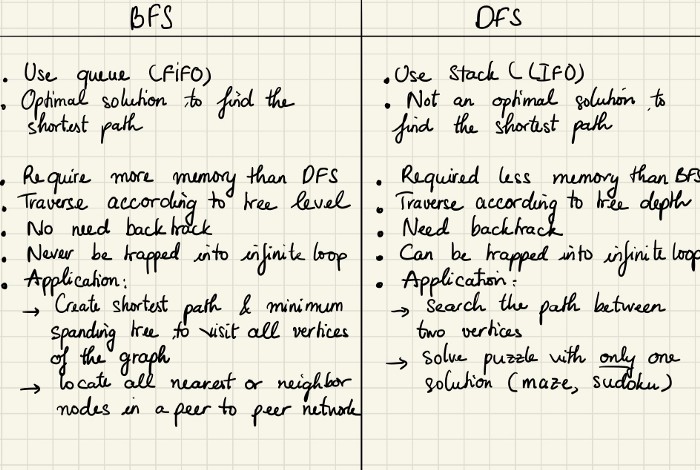 BFS
• Use queue (FiFO)
• Optimal solution to find the
shortest path
• Require more memory than DFS
• Traverse according to tree level
• No need backtrack
• Never be trapped into infinite loop
• Application:
→ Create shortest path & minimum
spanding tree to visit all vertices
of the graph
→ locate all nearest or neighbor
nodes in a peer to peer network
DFS
• Use Stack (LIFO)
• Not an optimal solution to
find the shortest path
• Required less memory than BFS
• Traverse according to tree depth
• Need backtrack
• Can be trapped into infinite loop
• Application:
→ Search the path between
two vertices
→ solve puzzle with only one
solution (maze, sudoku)